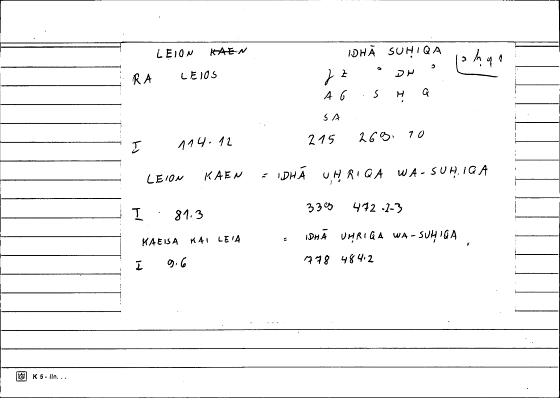 LEION KAEN IDHĀ SUḤIQA
RA LEIOS
AG S Ḥ Q
SA
I 114.12 215 269.10
LEION KAEN = IDHĀ UḤRIQA WA-SUḤIQA
I 81.3 339 472.2-3
KAEISA KAI LEIA = IDHĀ UḤRIQA WA-SUḤIQA
I 9.6 778 484.2
K 5 - lin. . .